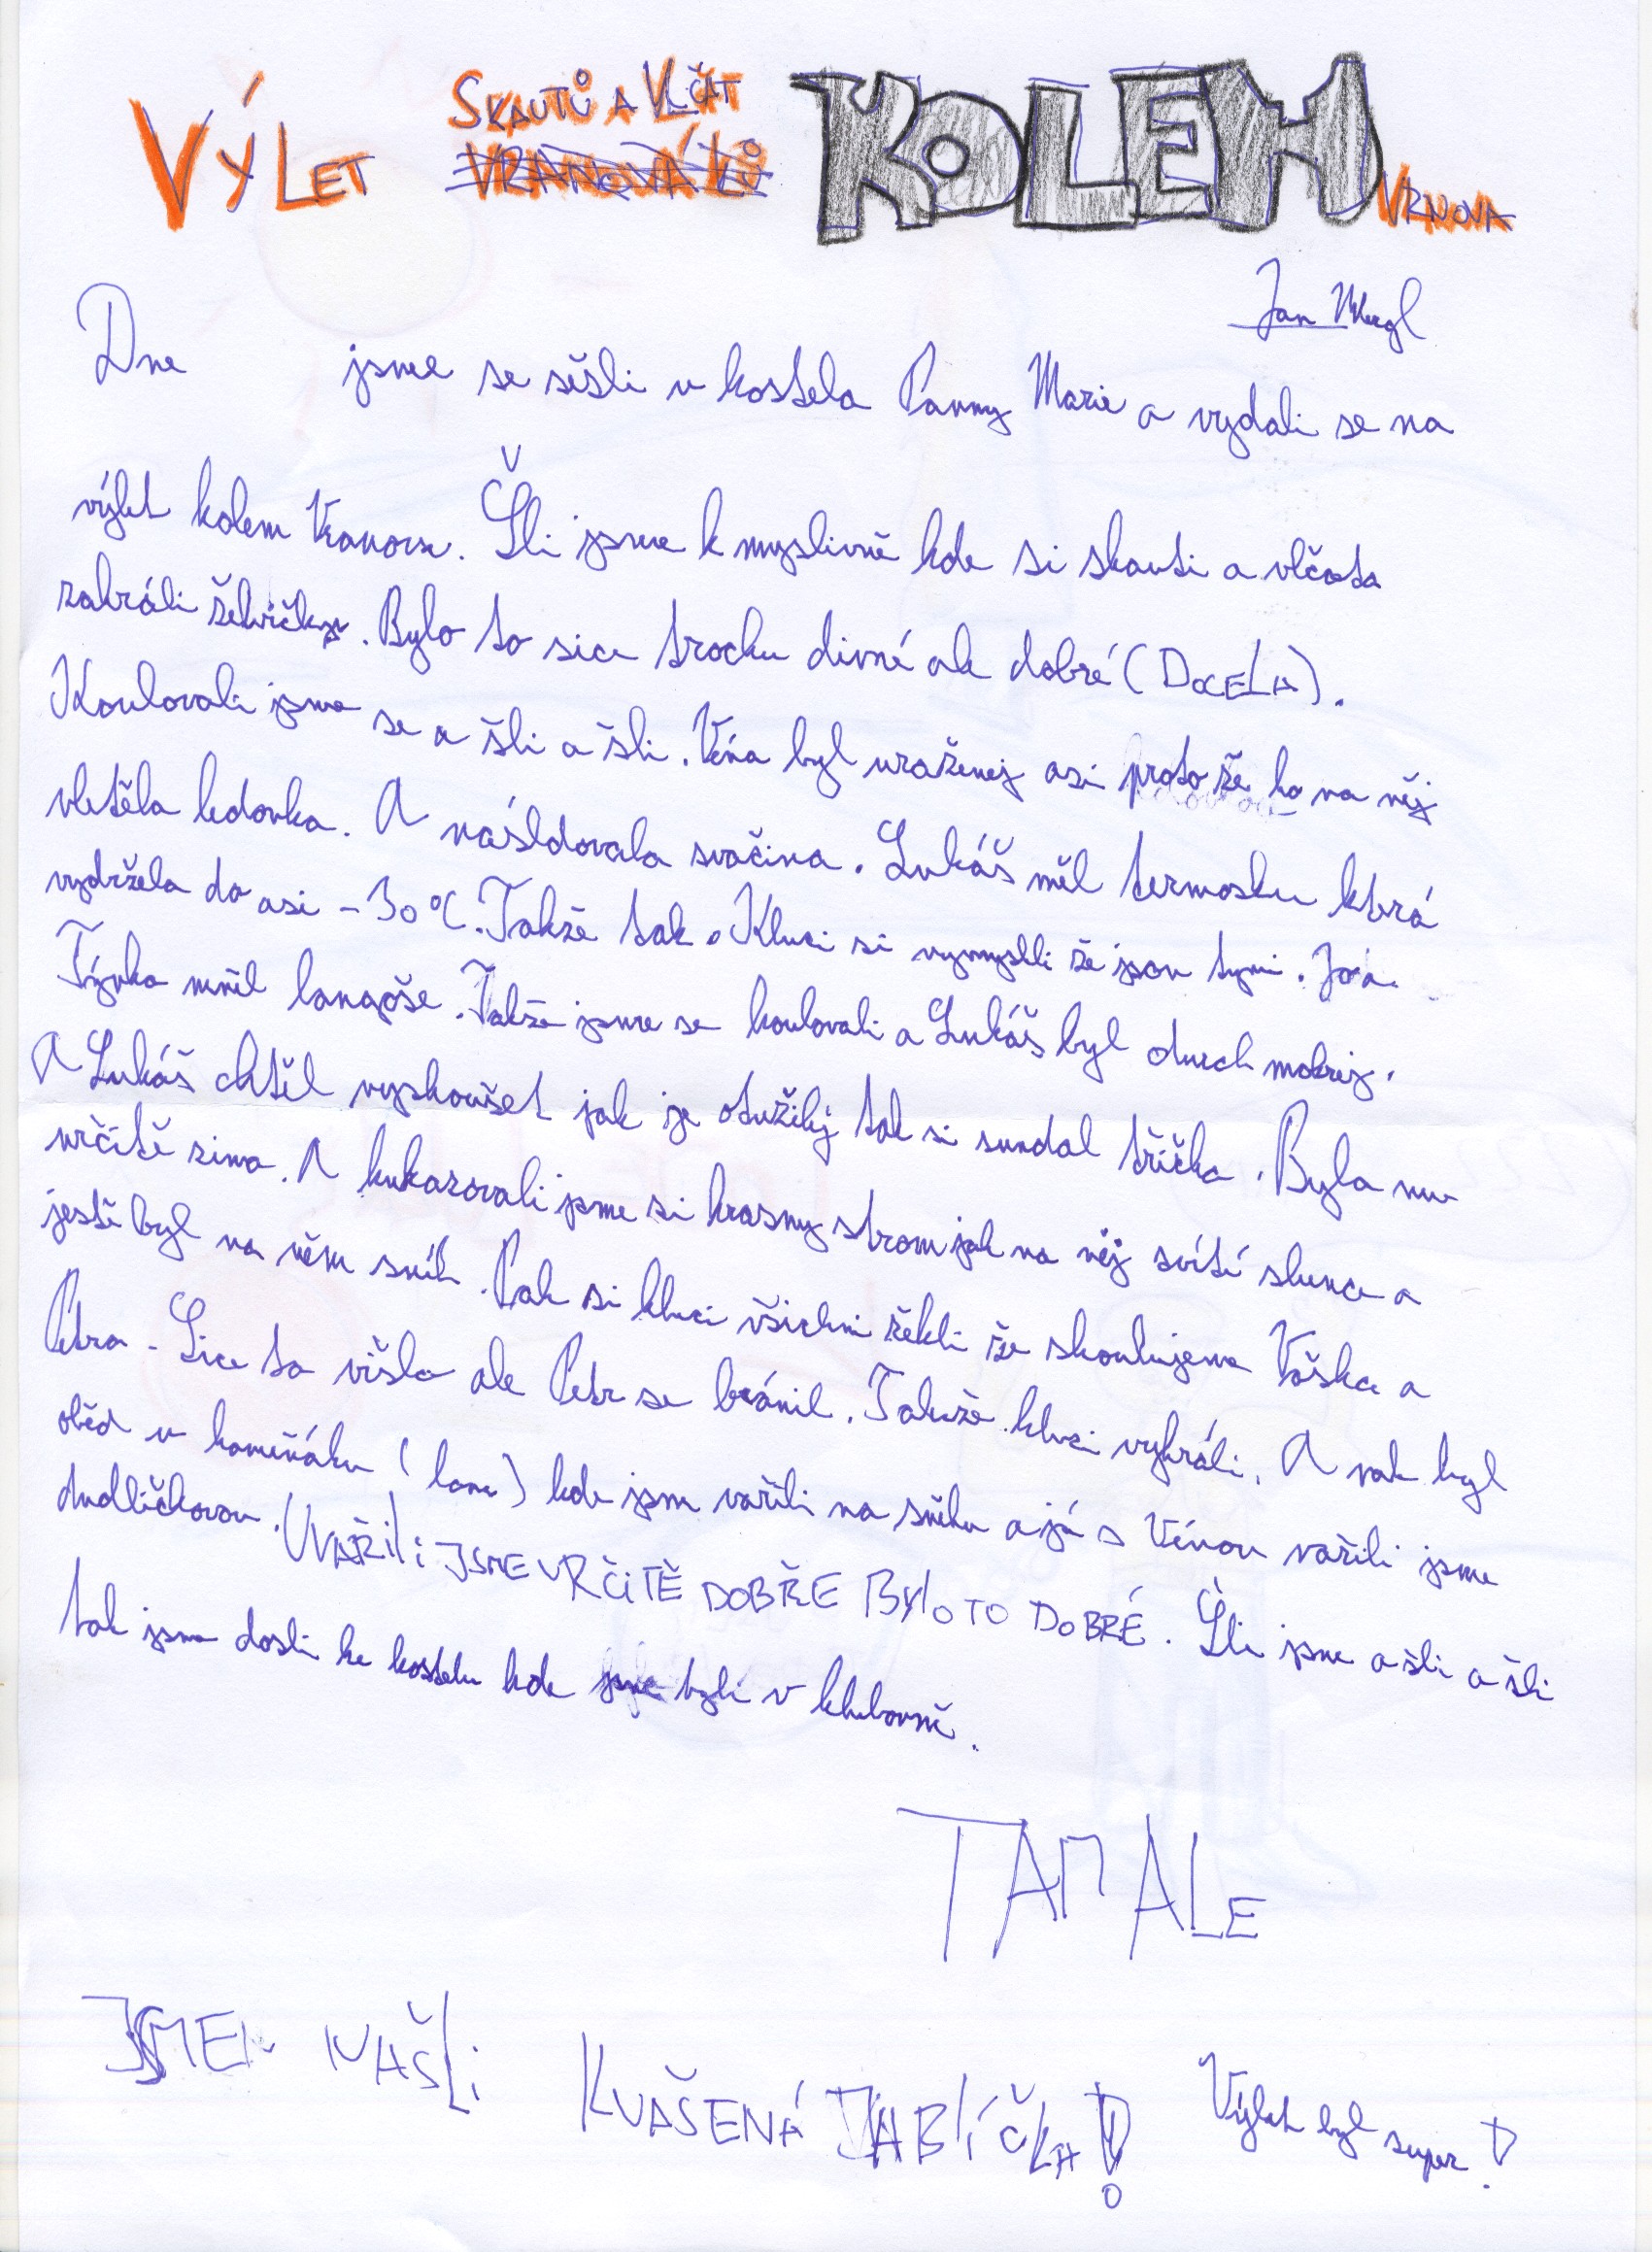 VÝLET SKAUTŮ A VLČAT KOLEM VRNOVA
Jan Mergl
Dne jsme se sešli u kostela Panny Marie a vydali se na
výlet kolem Vranova. Šli jsme k myslivně kde si skauti a vlčata
zahráli želvičky. Bylo to sice trochu divné ale dobré (DOCELA).
Koulovali jsme se a šli a šli. Véna byl uraženej asi proto že ho na něj
vletěla ledovka. A následovala svačina. Lukáš měl termosku která
vydržela do asi -30°C. Takže tak. Kluci si vymyslli že jsou tymi. Joa.
Týnka měnil . Takže jsme se koulovali a Lukáš byl durch mokrej.
A Lukáš chtěl vyzkoušet jak je otužilej tak si sundal tříčko. Byla mu
určitě zima. A kukazovali jsme si krasny strom jak na něj svítí slunce a
jestě byl na něm sníh. Pak si kluci všichni řekli že skoulujeme Vaška a
Petra. Sice to višlo ale Petr se bránil. Takže kluci vyhráli. A pak byl
oběd v kameňáku (lomu) kde jsm vařili na sněhu a já s Vénou vařili jsme
dudličkovou. UVAŘILi JSME URČITĚ DOBŘE BYLO TO DOBRÉ. Šli jsme a šli a šli
tak jsme dosli ke kostelu kde jsme byli v klubovně.
TAM ALE
JSMEN NAŠLi KVAŠENÁ JABLÍČKA! Výlet byl super!